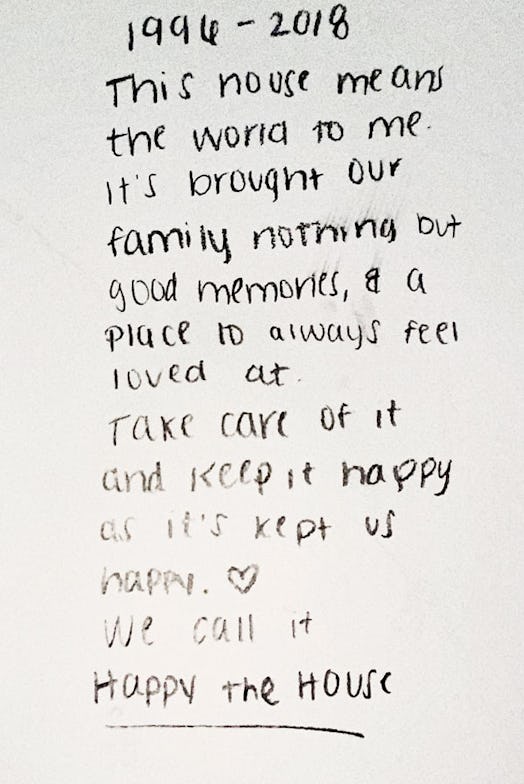 1996 - 2018
This house means
the world to me.
It's brought our
family nothing but
good memories, & a
place to always feel
loved at.
Take care of it
and keep it happy
as it's kept us
happy. ♡
We call it
Happy the House